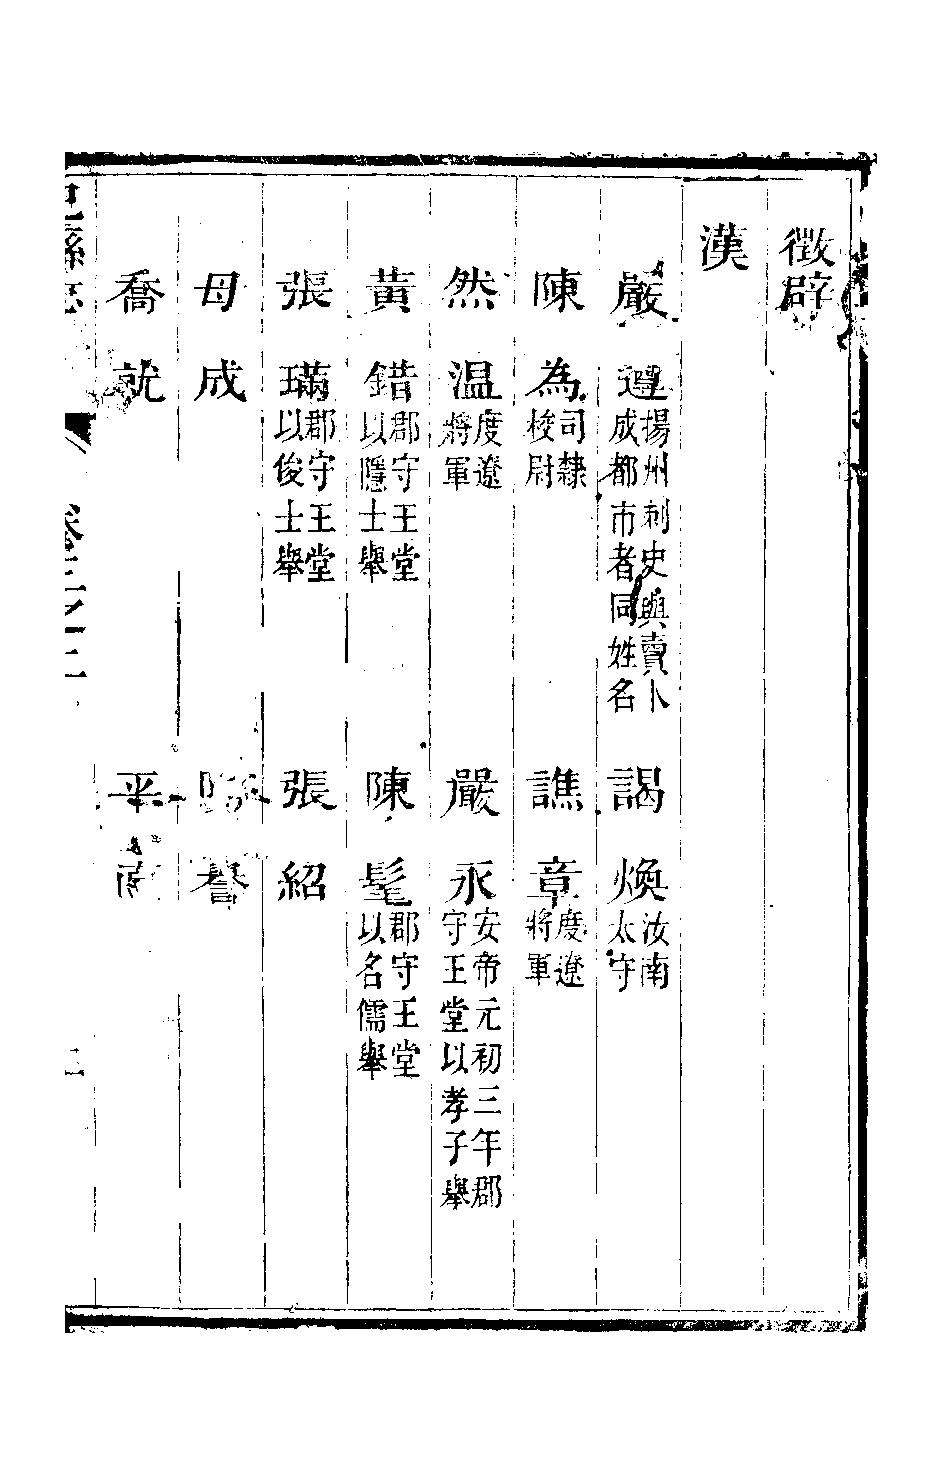 徵辟
漢
嚴遵揚州刺史與賣卜成都市者同姓名 謁煥汝南太守
陳為司隸校尉 譙章度遼將軍
然溫度遼將軍 嚴永安帝元初三年郡守王堂以孝子舉
黃錯郡守王堂以隱士舉 陳髦郡守王堂以名儒舉
張璊郡守王堂以俊士舉 張紹
母成 譽
喬就 平
巴縣志 卷三之二 二